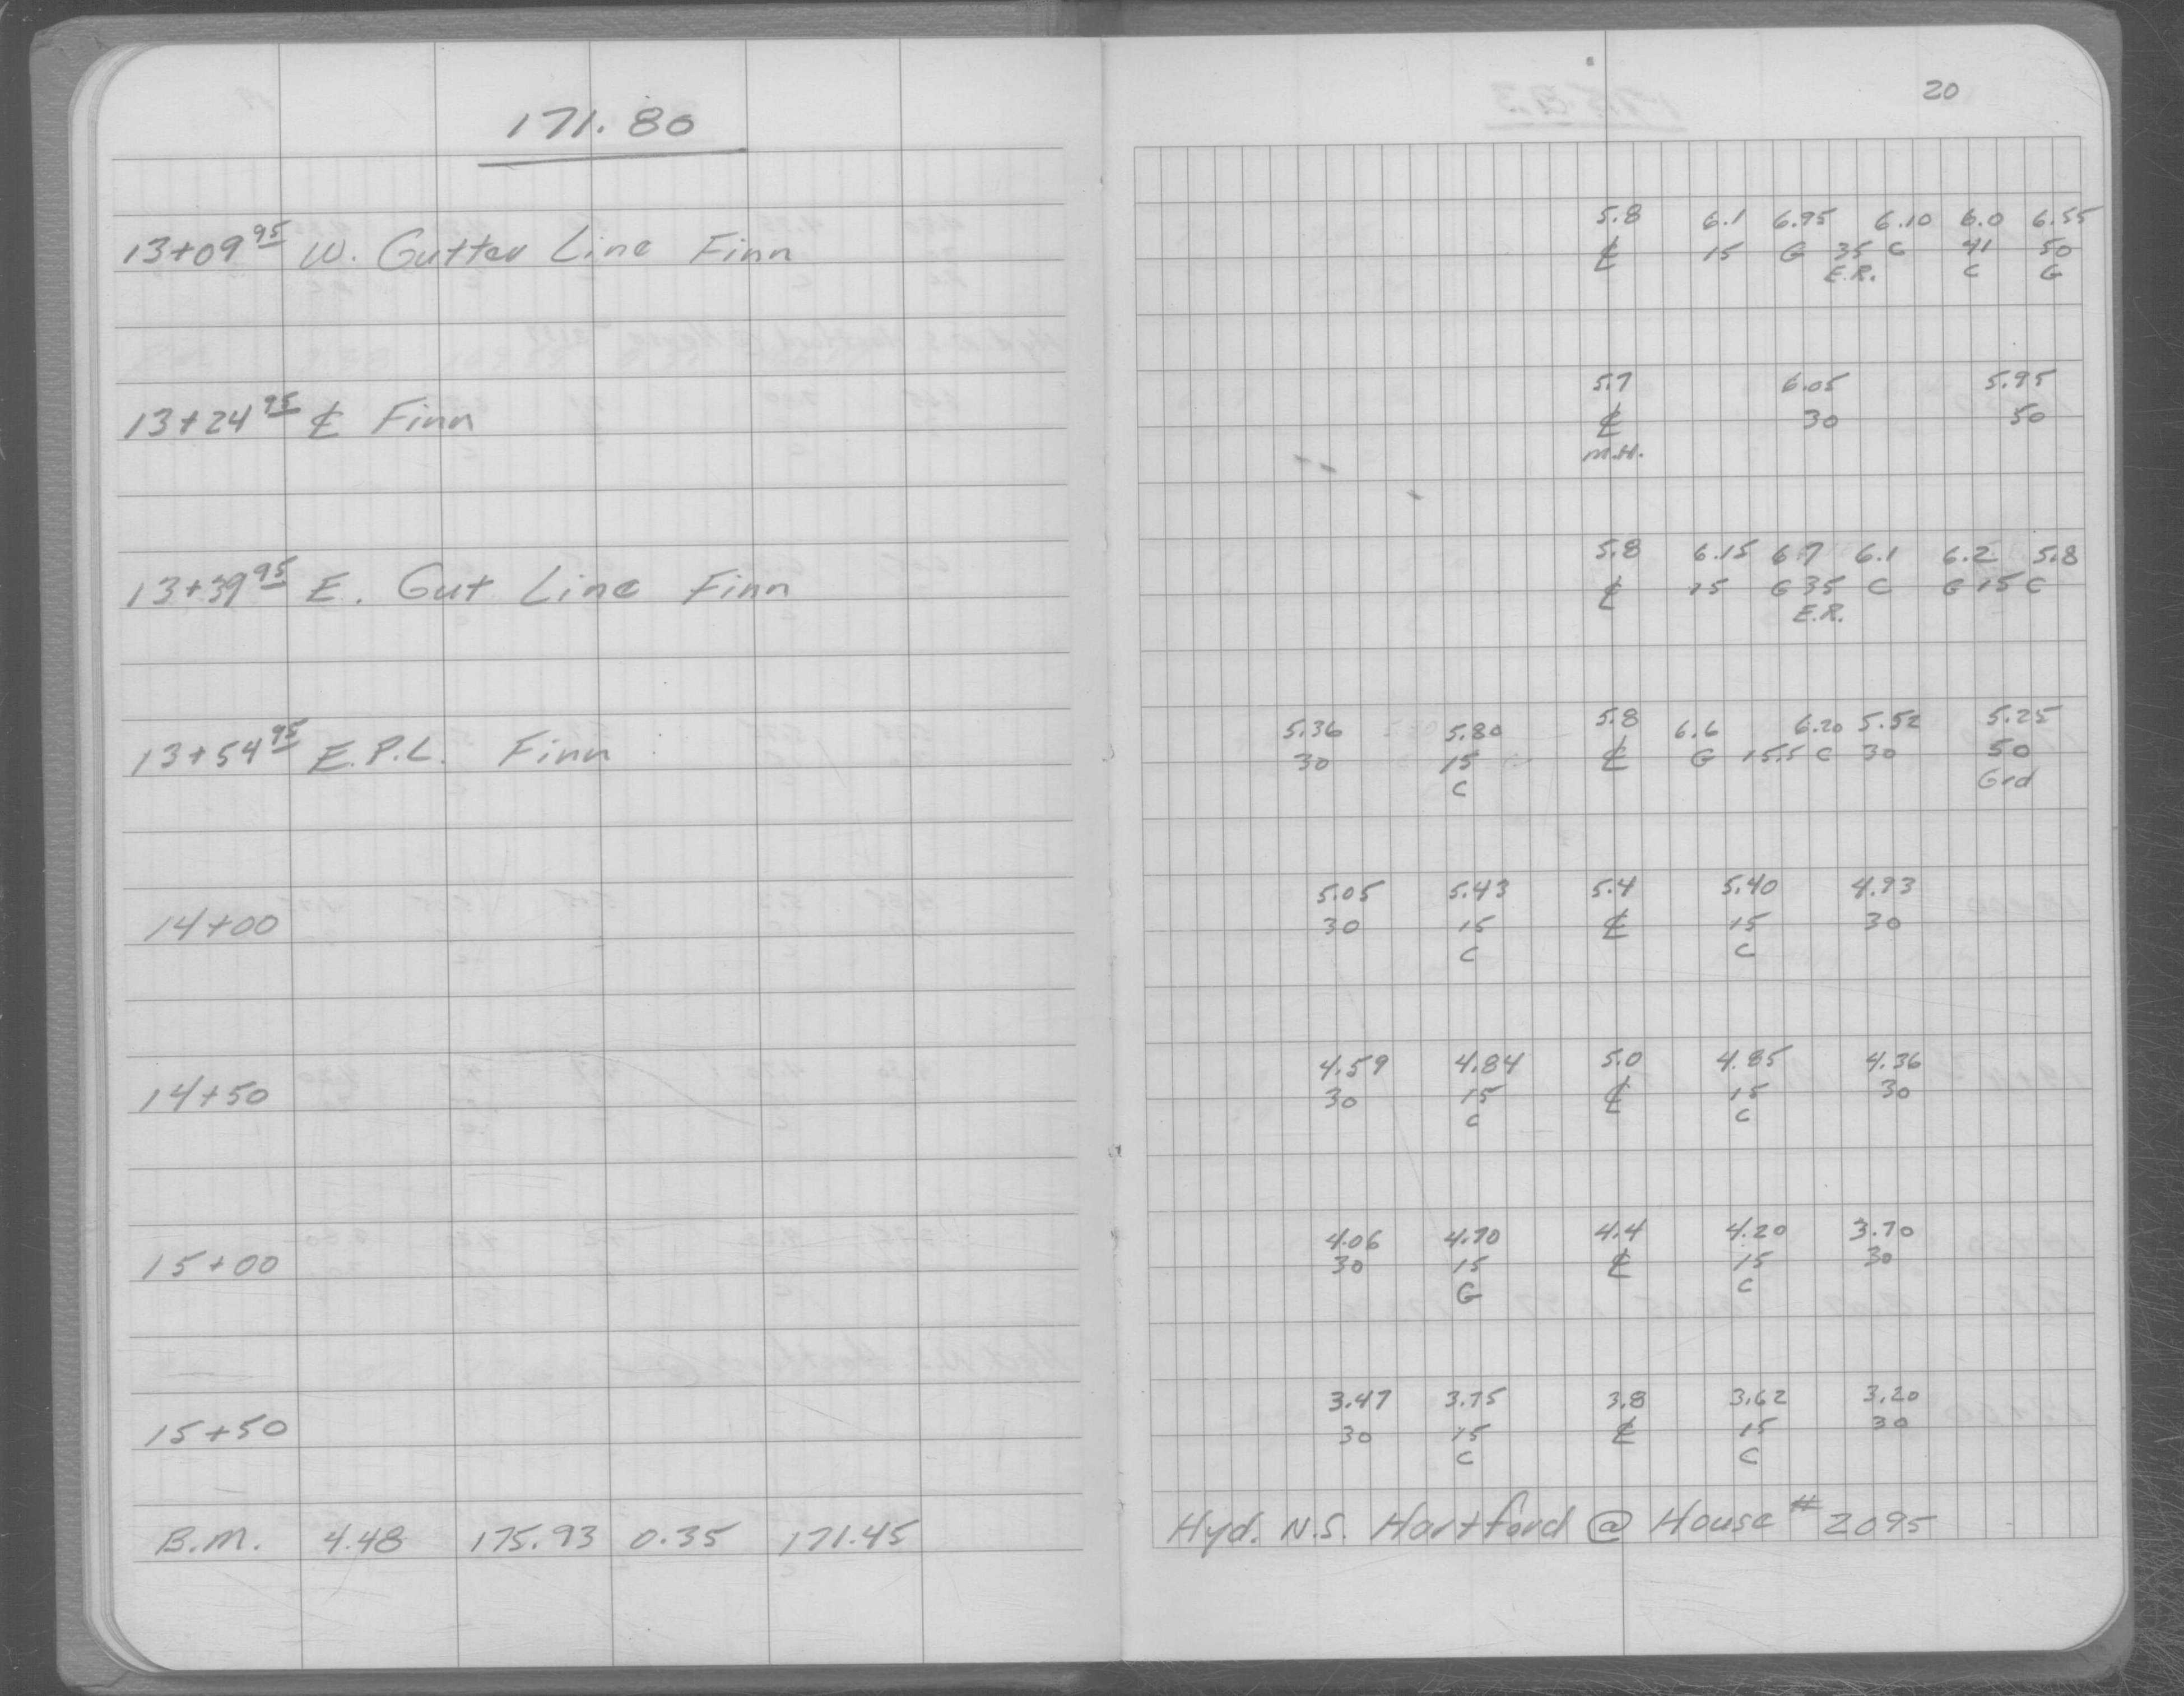 171.80
20
5.8 6.1 6.95 6.10 6.0 6.55
13+09 95 W. Gutter Line Finn ℄ 15 G 35 C 41 50
E.R. C G
5.7 6.05 5.95
13+24 95 ℄ Finn ℄ 30 50
M.H.
5.8 6.15 6.7 6.1 6.2 5.8
13+39 95 E. Gut Line Finn ℄ 15 G 35 C G 15 C
E.R.
5.36 5.80 5.8 6.6 6.20 5.52 5.25
13+54 95 E.P.L. Finn 30 15 ℄ G 15.5 C 30 50
C Grd
5.05 5.43 5.4 5.40 4.93
14+00 30 15 ℄ 15 30
C C
4.59 4.84 5.0 4.85 4.36
14+50 30 15 ℄ 15 30
C C
4.06 4.70 4.4 4.20 3.70
15+00 30 15 ℄ 15 30
G C
3.47 3.75 3.8 3.62 3.20
15+50 30 15 ℄ 15 30
C C
B.M. 4.48 175.93 0.35 171.45 Hyd. N.S. Hartford @ House # 2095